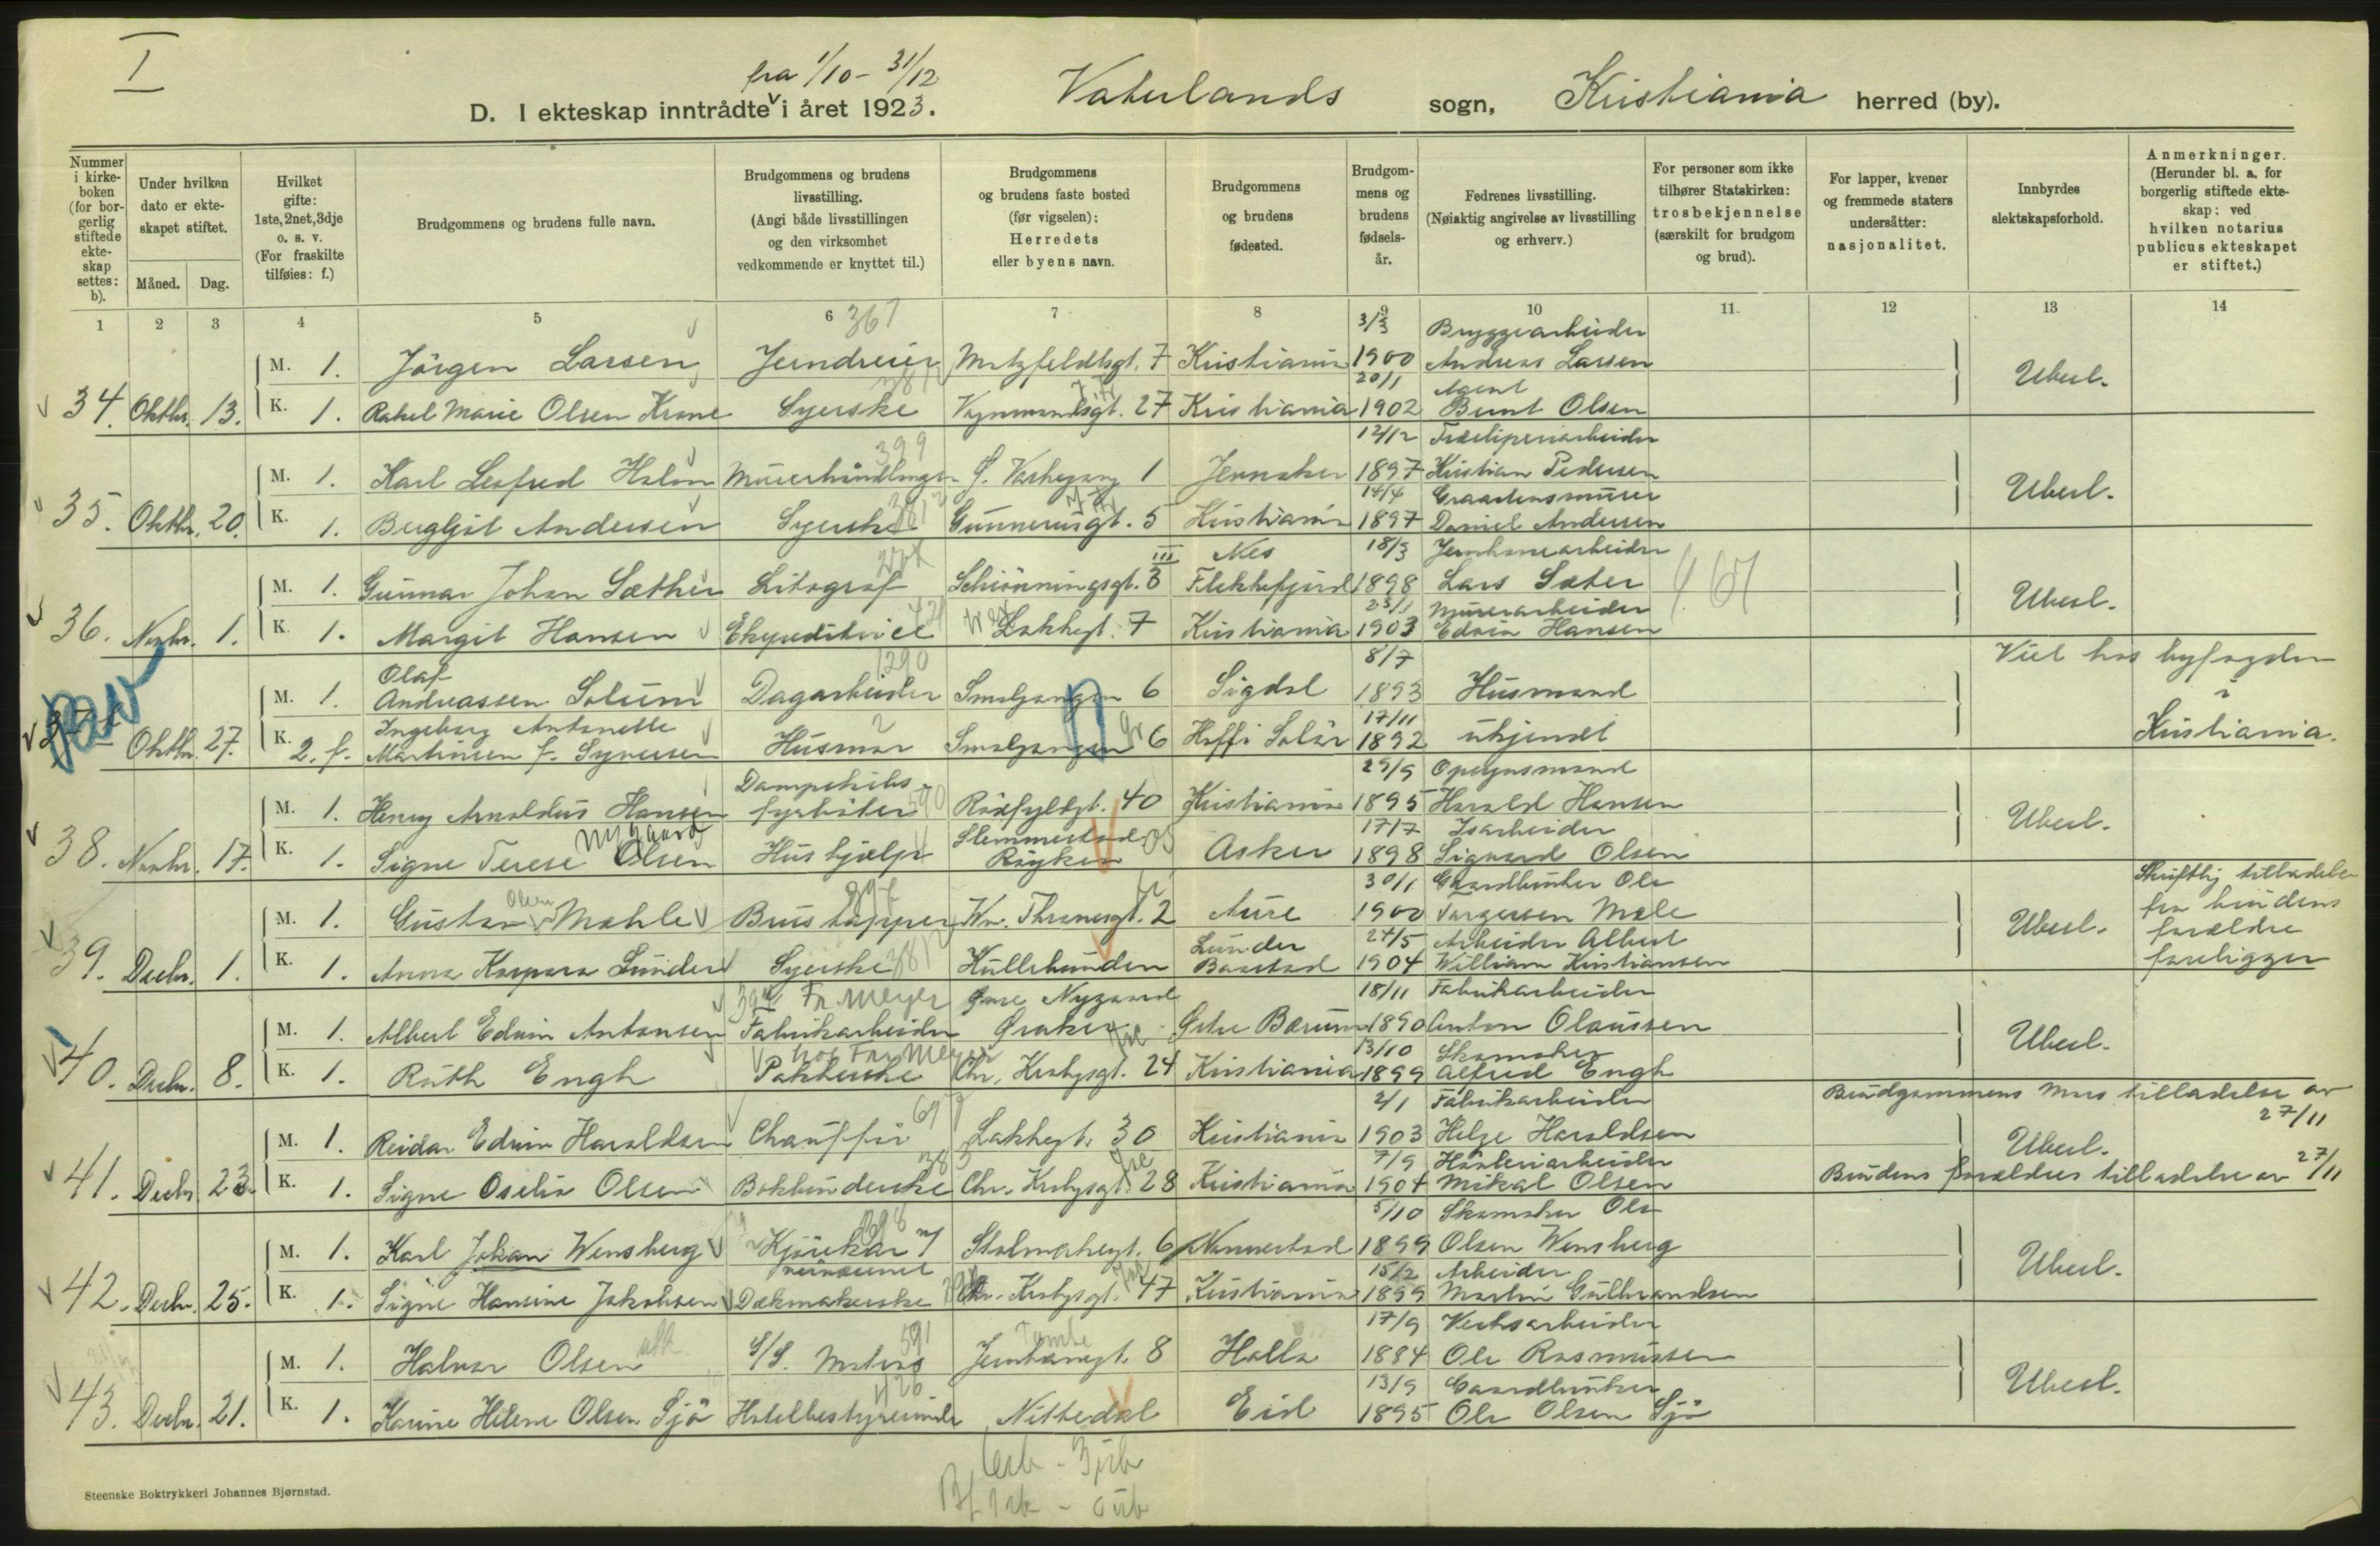 I
fra 1/10 - 31/12
D. I ekteskap inntrådte i året 1923. Vaterlands sogn, Kristiania herred (by).
Nummer i kirkeboken (for borgerlig stiftede ekteskap settes: b).
Under hvilken dato er ekteskapet stiftet.
Måned. Dag.
Hvilket gifte: 1ste, 2net, 3dje o. s. v. (For fraskilte tilføies: f.)
Brudgommens og brudens fulle navn.
Brudgommens og brudens livsstilling. (Angi både livsstillingen og den virksomhet vedkommende er knyttet til.)
Brudgommens og brudens faste bosted (før vigselen): Herredets eller byens navn.
Brudgommens og brudens fødested.
Brudgommens og brudens fødselsår.
Fedrenes livsstilling. (Nøiaktig angivelse av livsstilling og erhverv.)
For personer som ikke tilhører Statskirken: trosbekjennelse (særskilt for brudgom og brud).
For lapper, kvener og fremmede staters undersåtter: nasjonalitet.
Innbyrdes slektskapsforhold.
Anmerkninger. (Herunder bl. a. for borgerlig stiftede ekteskap: ved hvilken notarius publicus ekteskapet er stiftet.)
1 2 3 4 5 6 7 8 9 10 11. 12 13 14
367 3/3 Bryggearbeider
M. 1. Jörgen Larsen Jerndreier Motzfeldtsgt. 7 Kristiania 1900 Andreas Larsen Ubesl.
20/1 Agent
34. Oktbr. 13. K. 1. Rakel Marie Olsen Krone Syerske 27 Kristiania 1902 Bernt Olsen
399 12/12 Træsliperiarbeider
M. 1. Karl Leofred Holm Murerhåndlanger 1 Jevnaker 1897 Kristian Pedersen Ubesl.
14/4 Graastensmurer
35. Oktbr. 20. K. 1. Bergljot Andersen Syerske Gunnerusgt. 5 Kristiania 1897 Daniel Andersen
III Nes 18/3 Jernbanearbeider
M. 1. Gunnar Johan Sæther Litograf Schiönningsgt. 3 Flekkefjord 1898 Lars Sæter Ubesl.
23/1 Murerarbeider
36. Novbr. 1. K. 1. Margit Hansen Ekspeditrice Lakkegt. 7 Kristiania 1903 Edvin Hansen
Olaf 1290 8/7 Viet hos byfogden
M. 1. Andreassen Solum Dagarbeider Smalgangen 6 Sigdal 1893 Husmand i
Ingeborg Antonette 17/11
Oktbr. 27. K. 2. f. Martinsen f. Syversen Husmor Smalgangen 6 Hoff i Solör 1892 ukjendt Kristiania.
Dampskibs- 29/9 Opsynsmand
M. 1. Henry Arnoldus Hansen fyrböter Rosfyldgt. 40 Kristiania 1895 Harald Hansen Ubesl.
Nygaard Slemmestad 17/7 Isarbeider
38. Novbr. 17. K. 1. Signe Terese Olsen Hushjælp Röyken Asker 1898 Sigvard Olsen
30/1 Gaardbruker Ole Skriftlig tilladelse
Olsen
M. 1. Gustav Mahle Brustapper Wm. Thranesgt. 2 Aure 1900 Torgersen Mæle Ubesl. fra brudens
Lunder 24/5 Arbeider Albert forældre
39. Decbr. 1. K. 1. Anna Kaspara Lunder Syerske Kullebunden Baastad 1904 William Kristiansen foreligger
Fr. Meyer Övre Nygaard 18/11 Fabrikarbeider
M. 1. Albert Edvin Antonsen Fabrikarbeider Øraker Östre Bærum 1890 Anton Olaussen Ubesl.
hos Fr. Meyer 13/10 Skomaker
40. Decbr. 8. K. 1. Ruth Engh Pakkerske Chr. Krohgsgt. 24 Kristiania 1899 Alfred Engh
2/1 Fabrikarbeider Brudgommens Mors tilladelse av 27/11
M. 1. Reidar Edvin Haraldsen Chaufför Lakkegt. 30 Kristiania 1903 Helge Haraldsen Ubesl.
7/9 Høvleriarbeider Brudens forældres tilladelse av 27/11
41. Decbr. 23. K. 1. Signe Oselia Olsen Bokbinderske Chr. Krohgsgt. 28 Kristiania 1904 Mikal Olsen
5/10 Skomaker Ole
M. 1. Karl Johan Wensberg Kjörekar Stolmakergt. 6 Nannestad 1899 Olsen Wensberg Ubesl.
15/2 Arbeider
42. Decbr. 25. K. 1. Signe Hansine Jakobsen Dækmakerske Chr. Krohgsgt. 47 Kristiania 1899 Martin Gulbrandsen
591 Tomte 17/9 Verksarbeider
M. 1. Halvor Olsen S/S. Matros Jernbanegt. 8 Holla 1884 Ole Rasmussen Ubesl.
13/9 Gaardbruker
43. Decbr. 21. K. 1. Karine Helene Olsen Sjö Hotelbestyrerinde Nittedal Eid 1895 Ole Olsen Sjö
Steenske Boktrykkeri Johannes Bjørnstad.